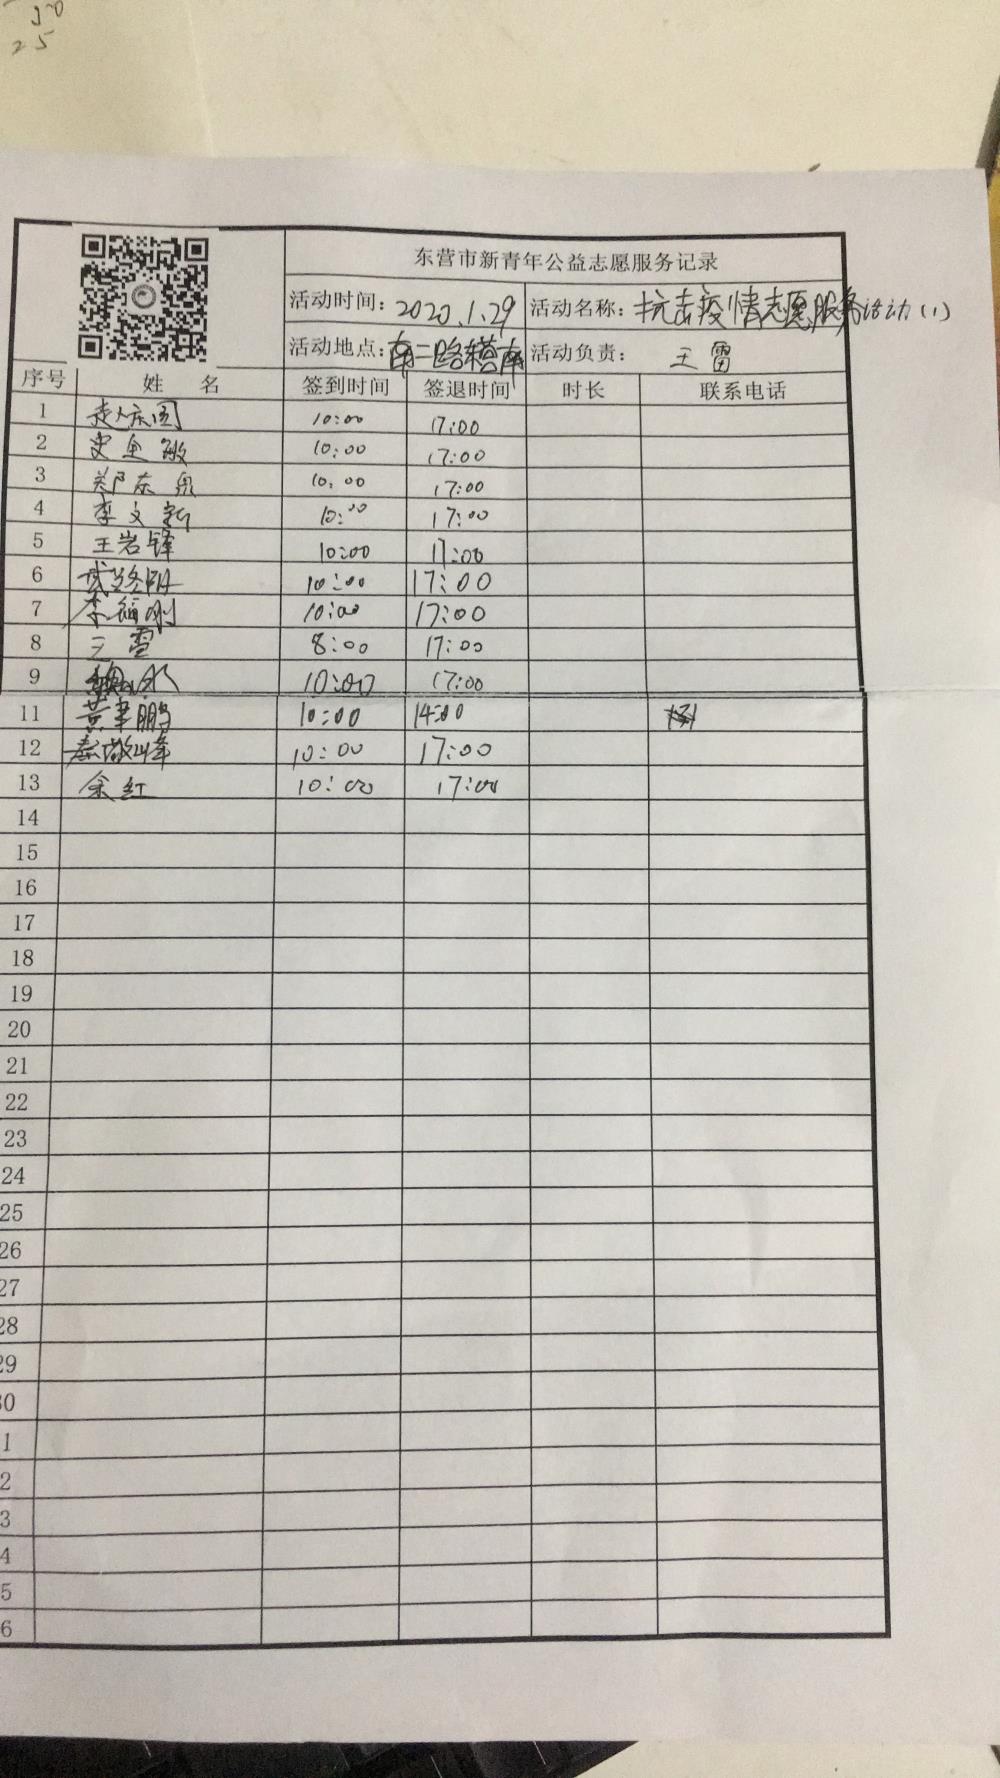 50
25
东营市新青年公益志愿服务记录
活动时间：2020.1.29 活动名称：抗击疫情志愿服务活动(1)
活动地点：南二路 活动负责： 王雷
序号 姓 名 签到时间 签退时间 时长 联系电话
1 赵庆国 10:00 17:00
2 史 敏 10:00 17:00
3 郑东泉 10:00 17:00
4 李文新 10:00 17:00
5 王岩铎 10:00 17:00
6 10:00 17:00
7 李福刚 10:00 17:00
8 王雷 8:00 17:00
9 10:00 17:00
11 黄聿鹏 10:00 14:00
12 秦敬峰 10:00 17:00
13 余红 10:00 17:00
14
15
16
17
18
19
20
21
22
23
24
25
26
27
28
29
30
1
2
3
4
5
6